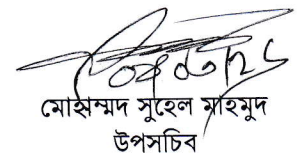 মোহাম্মদ সুহেল মাহমুদ
উপসচিব